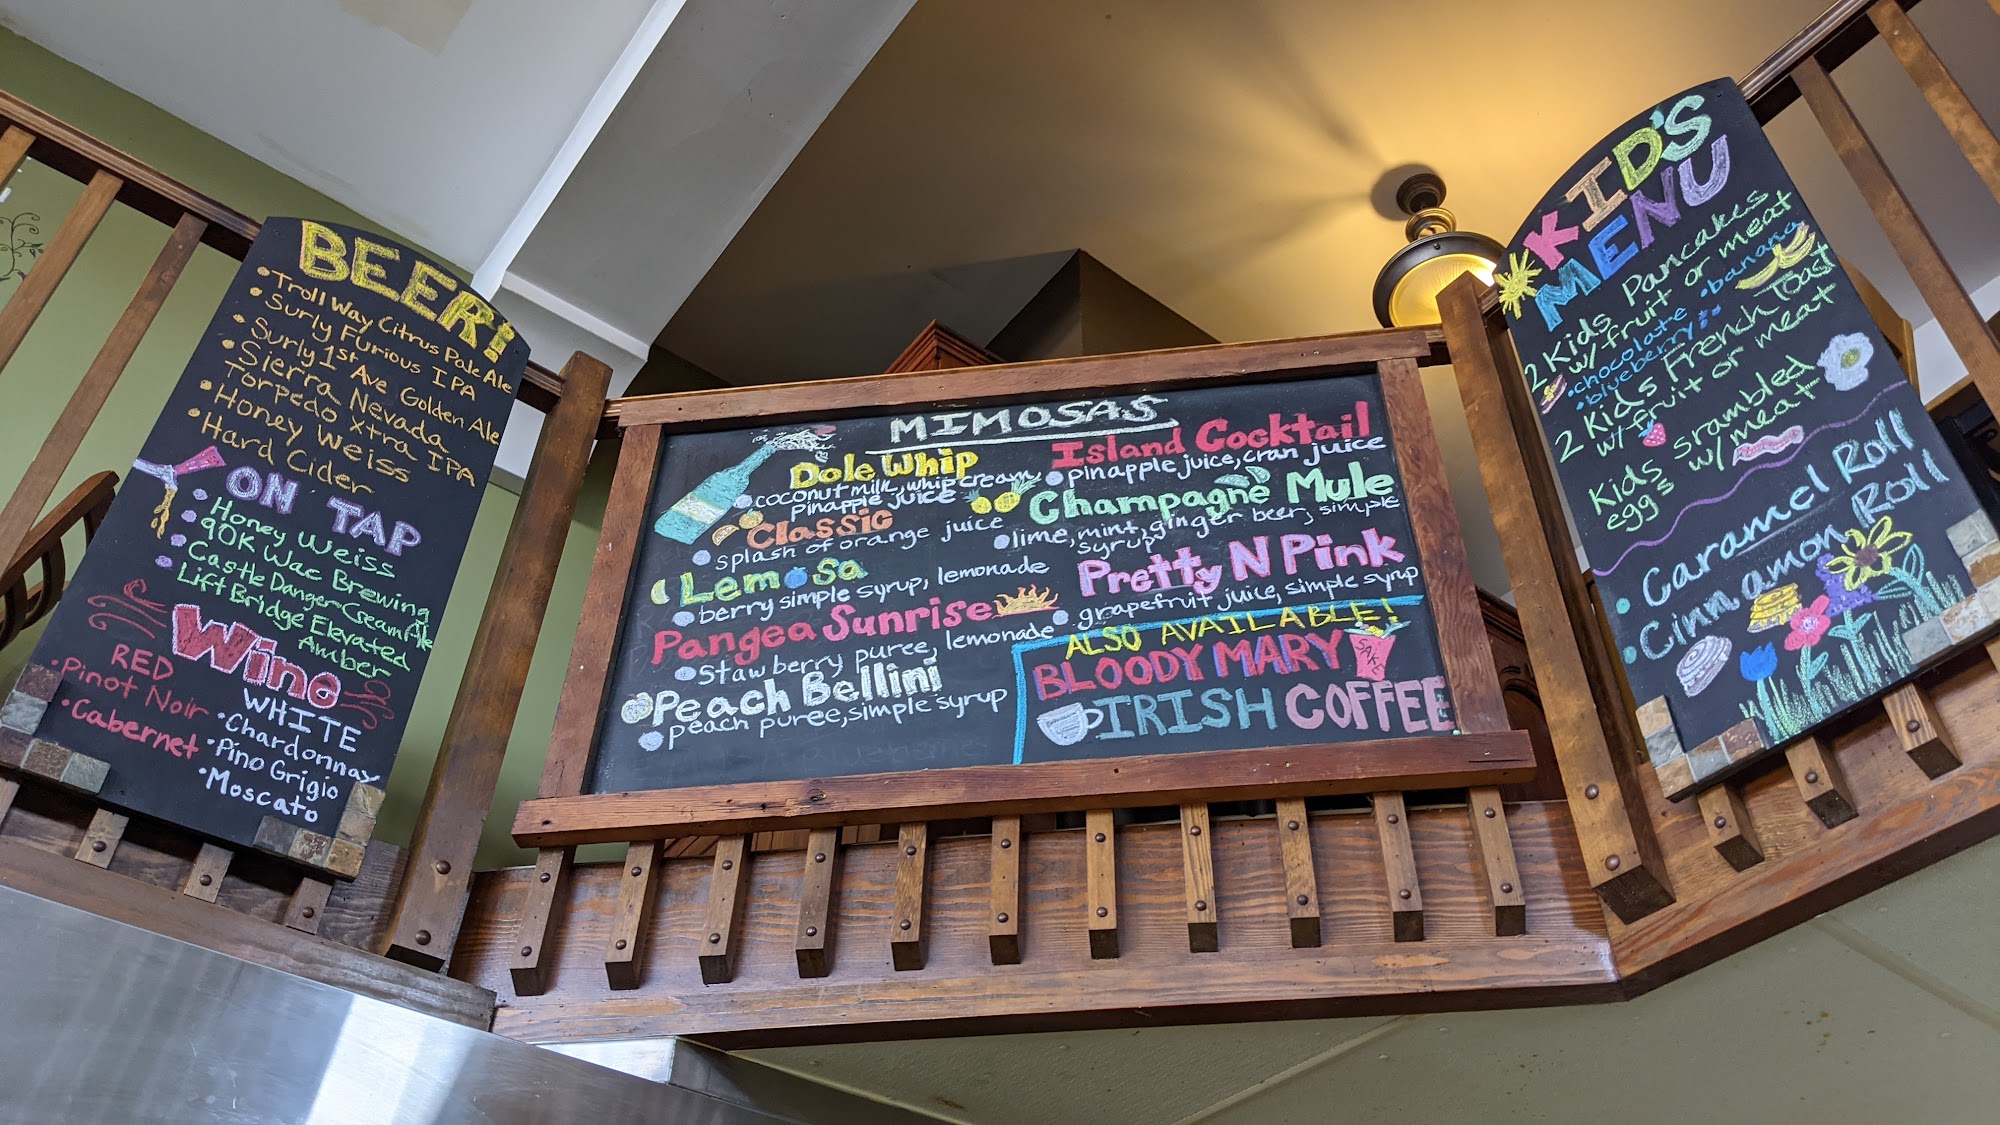 BEER!
• Troll Way Citrus Pale Ale
• Surly Furious IPA
• Surly 1st Ave Golden Ale
• Sierra Nevada
Torpedo Xtra IPA
• Honey Weiss
• Hard Cider
ON TAP
• Honey Weiss
• 90K Wac Brewing
• Castle Danger Cream Ale
• Lift Bridge Elevated
Amber
Wino
RED
• Pinot Noir
• Cabernet
WHITE
• Chardonnay
• Pino Grigio
• Moscato
MIMOSAS
Dole Whip
• coconut milk, whip cream,
pineapple juice
Classic
• splash of orange juice
Lemosa
• berry simple syrup, lemonade
Pangea Sunrise
• Stawberry puree, lemonade
Peach Bellini
• peach puree, simple syrup
Island Cocktail
• pinapple juice, cran juice
Champagne Mule
• lime, mint, ginger beer, simple
syrup
Pretty N Pink
• grapefruit juice, simple syrup
ALSO AVAILABLE!
BLOODY MARY
IRISH COFFEE
KID'S
MENU
2 Kids Pancakes
w/ fruit or meat
• chocolate • banana
• blueberry
2 Kids French Toast
w/ fruit or meat
Kids srambled
eggs w/ meat
• Caramel Roll
• Cinnamon Roll